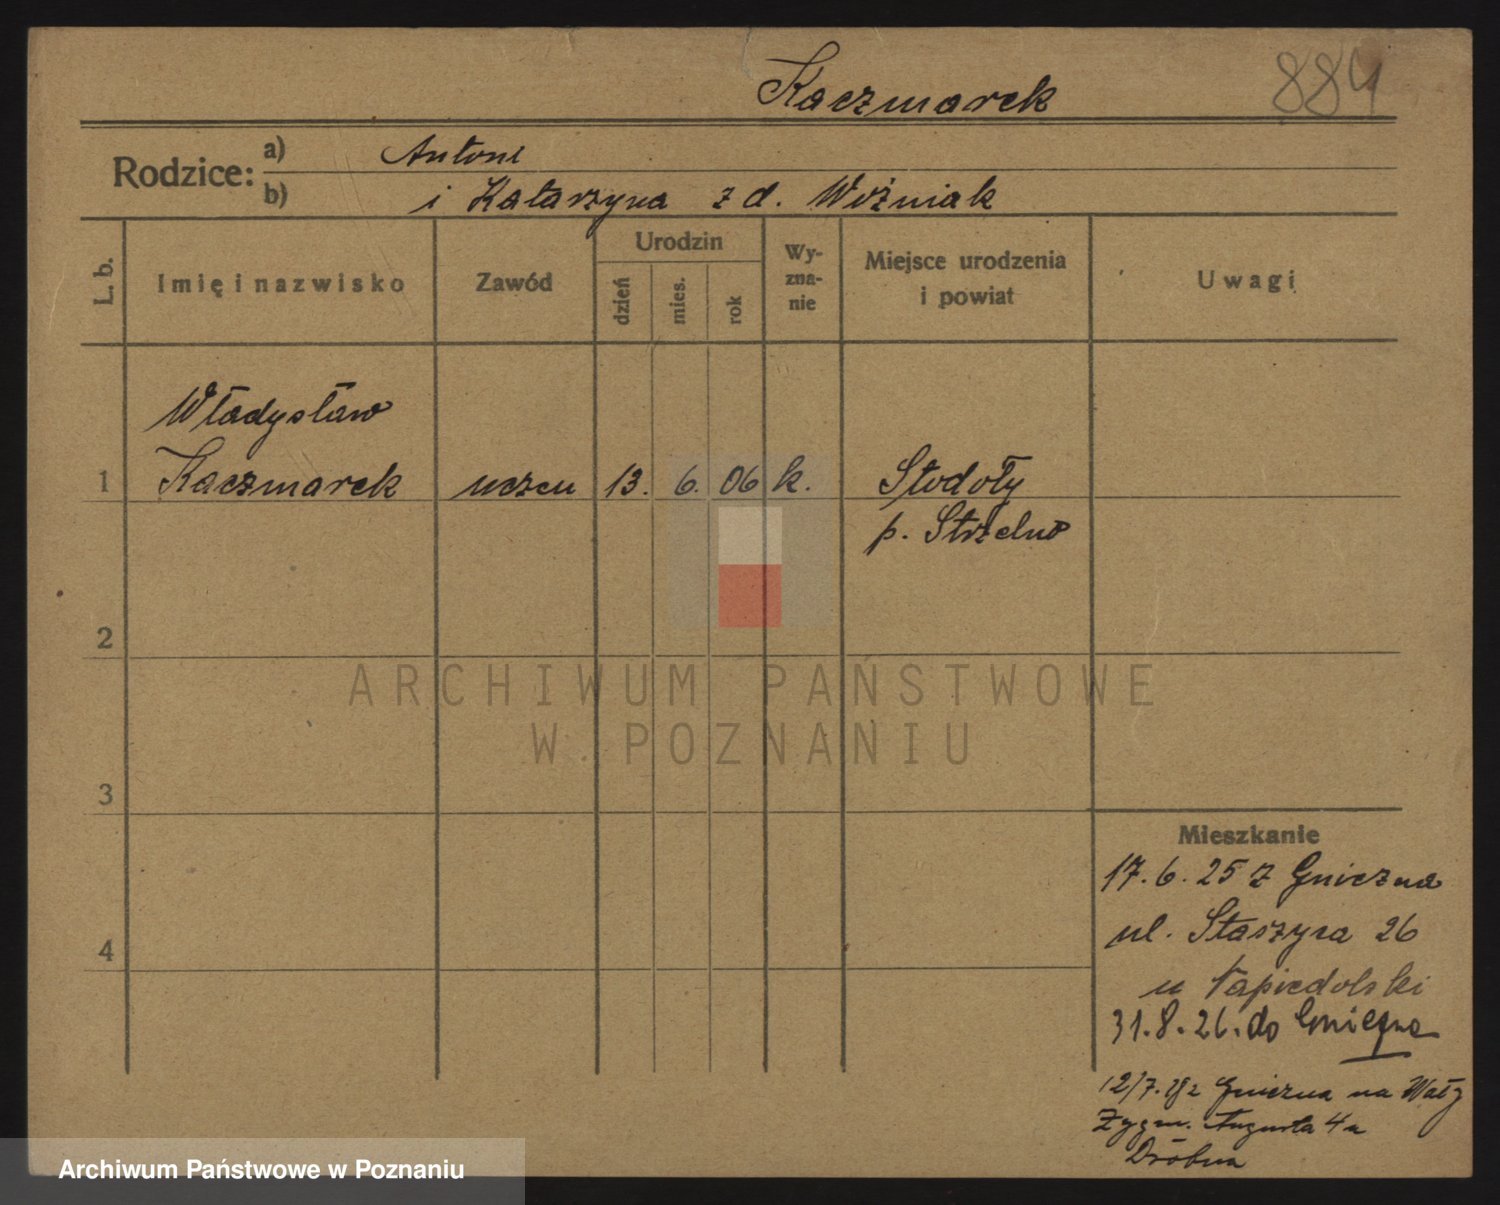 Kaczmarek
884
Rodzice:
a) Antoni
b) i Katarzyna z d. Woźniak
L. b.
Imię i nazwisko
Zawód
Urodzin
dzień
mies.
rok
Wy-
zna-
nie
Miejsce urodzenia
i powiat
Uwagi
Władysław
1 Kaczmarek uczeń 13. 6. 06 k. Stodoły
p. Strzelno
2
ARCHIWUM PAŃSTWOWE
W POZNANIU
3
Mieszkanie
17.6.25 z Gniezna
ul. Staszyca 26
4
u
31.8.26. do Gniezna
12/7. z Gniezna na Wały
Zygm. Augusta 4
Archiwum Państwowe w Poznaniu